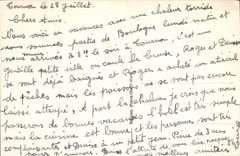 Tournon le 28 Juillet.
Chers Amis.
Nous voici en vacances avec une chaleur torride
nous sommes partis de Boulogne lundi matin et
nous arrivés à 8h le soir à Tournon, c'est une
gentille petite ville ou coule le Roger et
se sont déjà baignés et Roger a acheté un attirail
de pêches mais les poissons ne se sont pas encore
laissé attrapé, A part la chaleur je crois que nous
passerons de bonnes vacances l'hôtel est très simple
mais la cuisine est bonne et les personnes sont très
complaisantes et Denise a un petit de 3 ans